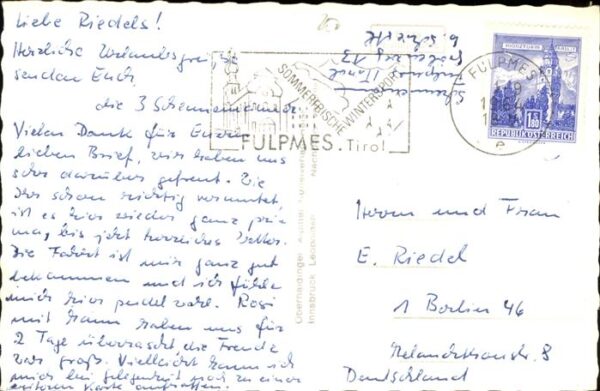 Liebe Riedels!
Herzliche Urlaubsgrüße
senden Euch
die 3
Vielen Dank für Euren
lieben Brief, wir haben uns
sehr darüber gefreut. Wie
Ihr schon richtig vermutet,
ist es hier wieder ganz pri
ma, bis jetzt herrliches Wetter.
Die Fahrt ist mir ganz gut
bekommen und ich fühle
mich hier pudelwohl. Rosi
mit Mann haben uns für
2 Tage überrascht die Freude
war groß. Vielleicht kann ich
mich bei Gelegenheit noch zu einer
weiteren Karte aufraffen.
SOMMERFRISCHE WINTERSPORT
FULPMES.Tirol
FULPMES
e
1.80
REPUBLIK ÖSTERREICH
Herrn und Frau
E. Riedel
1 Berlin 46
Helandstraße 8
Deutschland